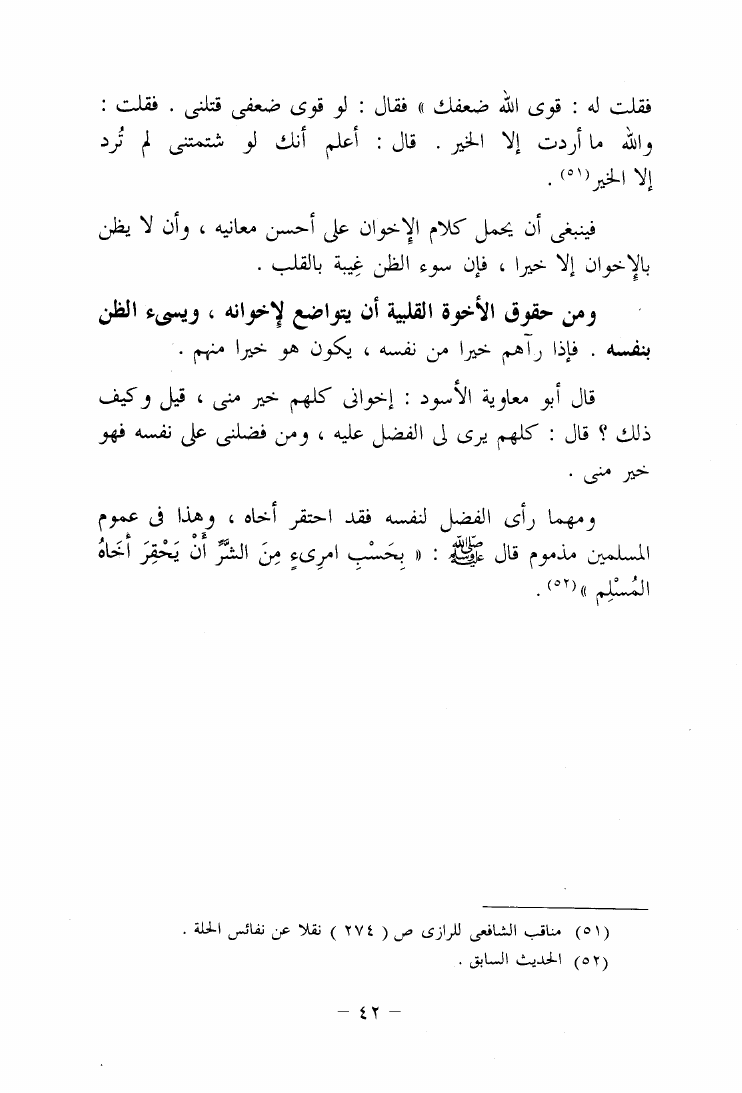 فقلت له : قوى الله ضعفك » فقال : لو قوى ضعفى قتلنى . فقلت :
والله ما أردت إلا الخير . قال : أعلم أنك لو شتمتنى لم تُرد
إلا الخير(٥١) .
فينبغى أن يحمل كلام الإخوان على أحسن معانيه ، وأن لا يظن
بالإخوان إلا خيرا ، فإن سوء الظن غِيبة بالقلب .
ومن حقوق الأخوة القلبية أن يتواضع لإخوانه ، ويسىء الظن
بنفسه . فإذا رآهم خيرا من نفسه ، يكون هو خيرا منهم .
قال أبو معاوية الأسود : إخوانى كلهم خير منى ، قيل وكيف
ذلك ؟ قال : كلهم يرى لى الفضل عليه ، ومن فضلنى على نفسه فهو
خير منى .
ومهما رأى الفضل لنفسه فقد احتقر أخاه ، وهذا فى عموم
المسلمين مذموم قال ﷺ : « بِحَسْبِ امرِىءٍ مِنَ الشَّرِّ أَنْ يَحْقِرَ أَخَاهُ
المُسْلِم »(٥٢) .
(٥١) مناقب الشافعى للرازى ص ( ٢٧٤ ) نقلا عن نفائس الحلة .
(٥٢) الحديث السابق .
— ٤٢ —